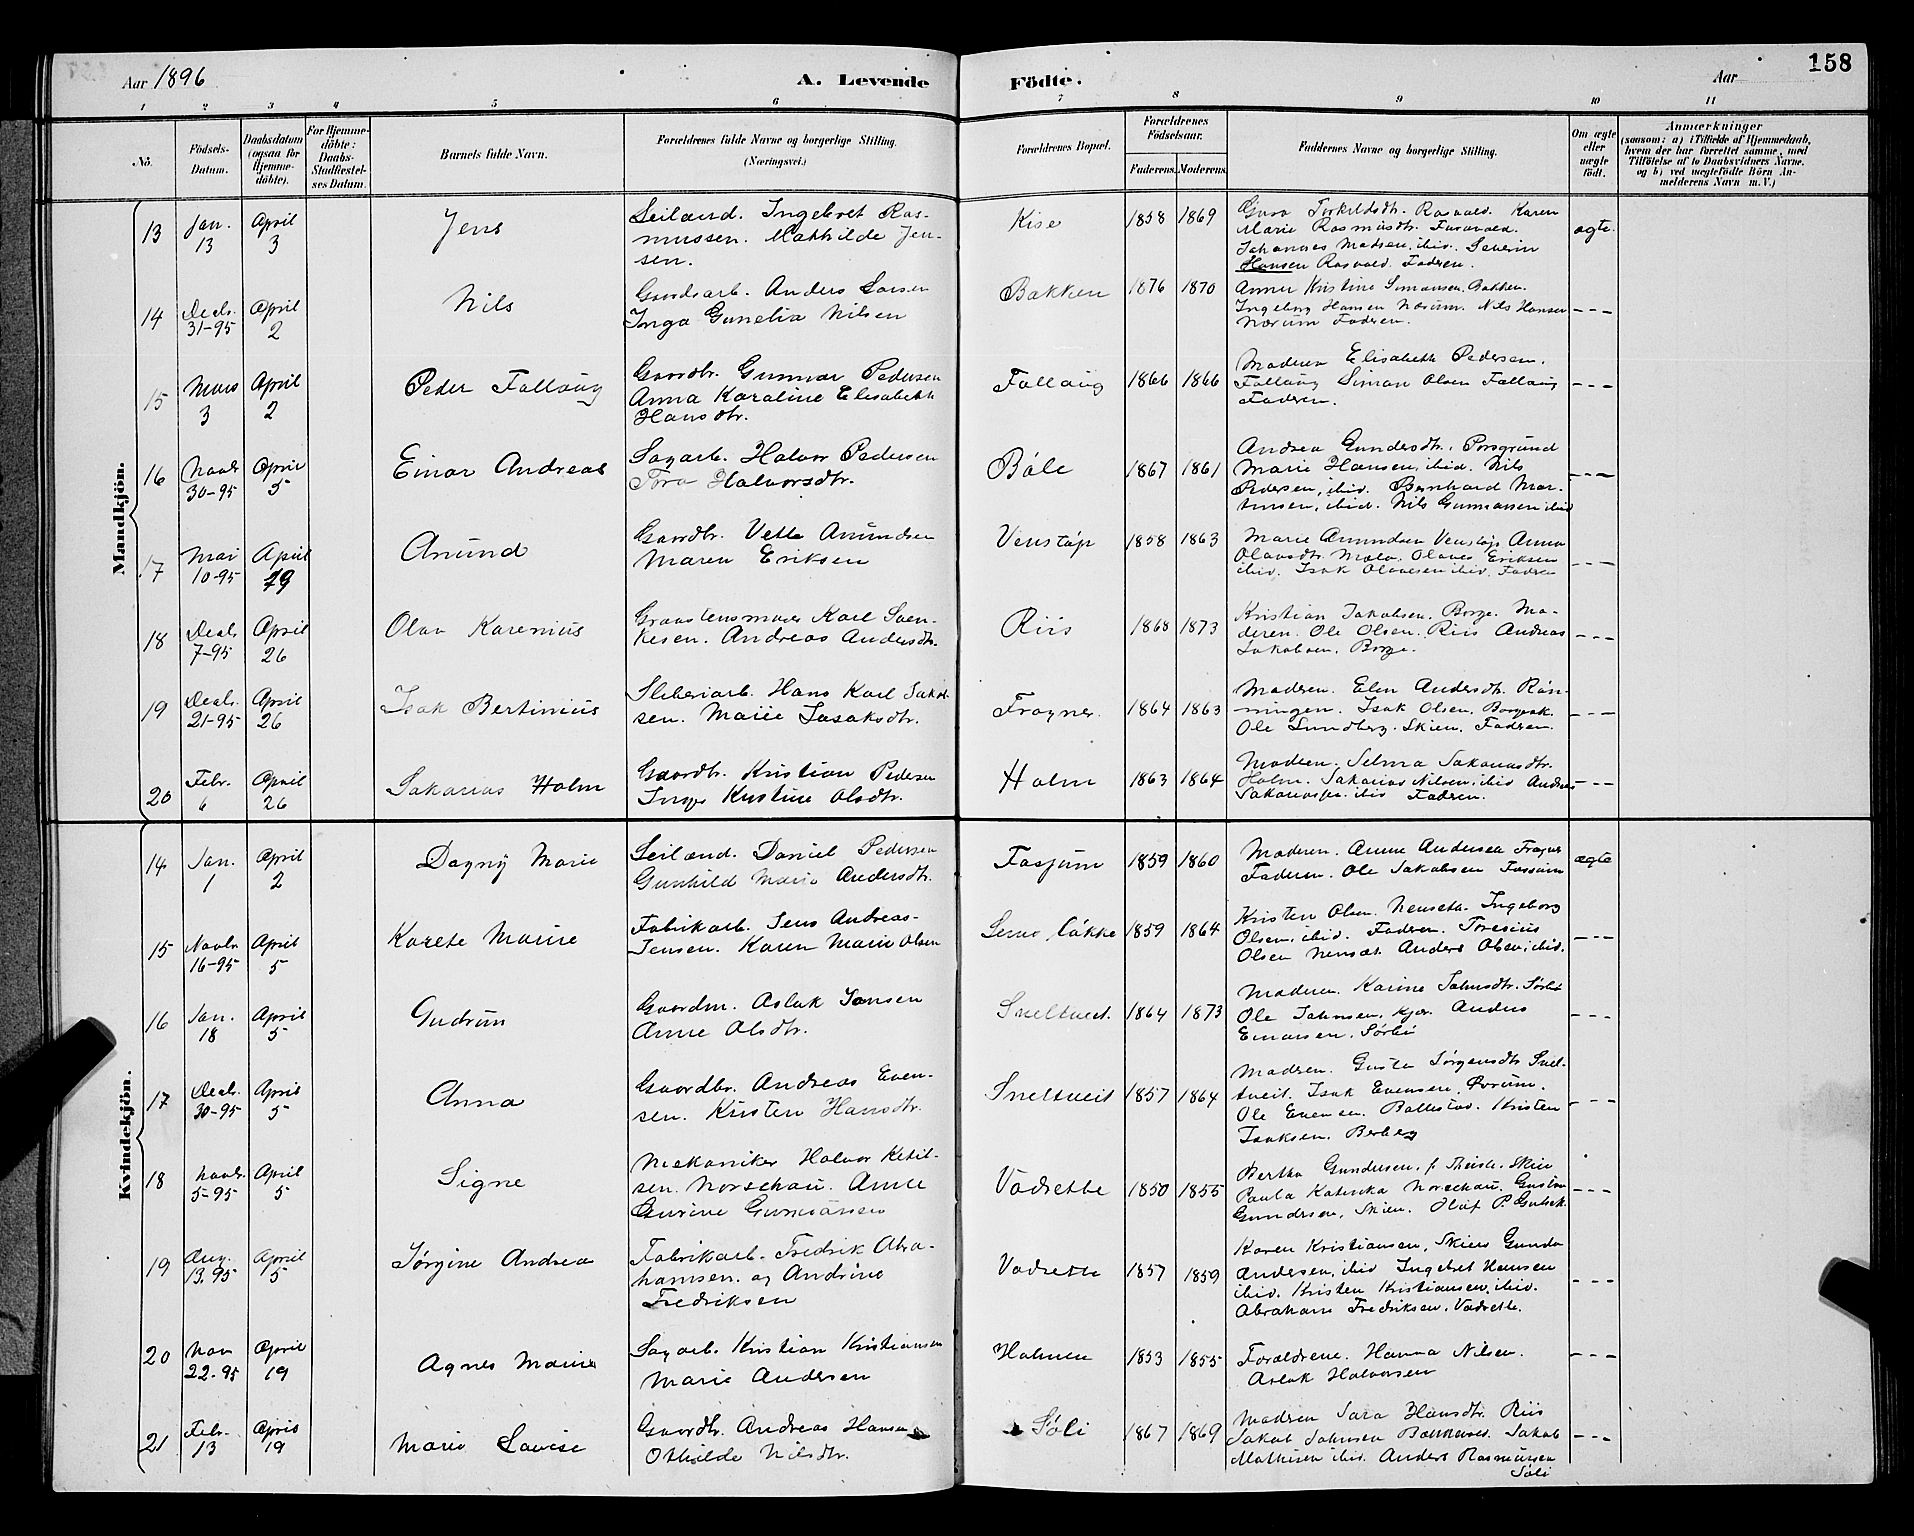 158
Aar 1896
A. Levende Födte.
Aar
1 2 3 4 5 6 7 8 9 10 11
No.
Födsels-Datum.
Daabsdatum (ogsaa for Hjemme-döbte).
For Hjemme-döbte: Daabs-Stadfæstel-ses Datum.
Barnets fulde Navn.
Forældrenes fulde Navne og borgerlige Stilling.
(Næringsvei.)
Forældrenes Bopæl.
Forældrenes Födselsaar.
Faderens. Moderens.
Faddernes Navne og borgerlige Stilling.
Om ægte eller uægte födt.
Anmærkninger
(saasom: a) i Tilfælde af Hjemmedaab, hvem der har forrettet samme, med Tilföielse af to Daabsvidners Navne, og b) ved uægtefödte Börn Anmelderens Navn m. V.)
Mandkjön.
13 Jan. 13 April 3 Jens
Seilænd. Ingebret Ras-
mussen. Mathilde Jen-
sen.
Kise 1858 1869
Torkildsdt. Rasvald. Karen
Marie Rasmusdtr.
Johannes Madsen, ibid. Severin
Hansen Rasvald. Faderen.
ægte.
14 Decbr. 31-95 April 2 Nils
Gaardsarb. Anders Larsen
Inga Gunelia Nilsen
Bakken 1876 1870
Anne Kristine Simonsen. Bakken.
Ingeborg Hansen Nærum. Nils Hansen
Nærum Faderen.
---
15 Mars 3 April 2 Peder Fallaug
Gaardbr. Gunnar Pedersen
Anna Karoline Elisabeth
Hansdtr.
Fallaug 1866 1866
Moderen Elisabeth Pedersen.
Fallaug Simon Olsen Fallaug
Faderen.
---
16 Novbr 30-95 April 5 Einar Andreas
Sagarb. Halvor Pedersen
Tora Halvorsdtr.
Böle 1867 1861
Andrea Gundersdtr. Porsgrund
Marie Hansen, ibid. Nils
Pedersen, ibid. Bernhard Mar-
tinsen, ibid. Nils Gunnarsen ibid
---
17 Mai 10-95 April 19 Anund
Gaardbr. Vetle Anundsen
Maren Eriksen
Venstøp 1858 1863
Marie Amundsen Venstøp Anna
Olavsdtr. Mæla. Olaves Eriksen
ibid. Isak Olavesen ibid. Faderen
---
18 Decbr 7-95 April 26 Olav Karenius
Graastensmurer Karl Sven-
kesen. Andreas Andersdtr.
Riis 1868 1873
Kristian Jakobsen. Borge. Mo-
deren. Ole Olsen. Riis Andreas
Jakobsen. Borge.
---
19 Decbr. 21-95 April 26 Isak Bertinius
Sliberiarb. Hans Karl Jakob
sen. Marie Isaksdtr.
Frogner. 1864 1863
Moderen. Elen Andersdtr. Røn-
ningen. Isak Olsen.
Ole Sundberg. Skien. Faderen.
---
20 Febr. 6 April 26 Sakarias Holm
Gaardbr. Kristian Pedersen
Inger Kristine Olsdtr.
Holm 1863 1864
Moderen. Selma Sakariasdtr.
Holm. Sakarias Nilsen, ibid Andreas
Sakariassen ibid Faderen.
---
Kvindekjön.
14 Jan. 1 April 2 Dagny Marie
Seilænd. Daniel Pedersen
Gunhild Marie Andersdtr.
Fossum 1859 1860
Moderen. Anne Andersen Frogner
Faderen. Ole Jakobsen Fossum
ægte
15 Novbr 16-95 April 5 Karete Marie
Fabrikarb. Jens Andreas
Jensen. Karen Marie Olsen
Løkke 1859 1864
Kristen Olsen. Nenset. Ingeborg
Olsen, ibid. Faderen. Toresius
Olsen Nenset. Anders Olsen, ibid.
---
16 Jan. 18 April 5 Gudrun
Gaardm. Aslak Jansen
Anne Olsdtr.
Sneltved. 1864 1873
Moderen. Karine Johnsdtr. Sørbö
Ole Johnsen, Kjær. Anders
Einarsen. Sörbö
---
17 Decbr. 30-95 April 5 Anna
Gaardbr. Andreas Even-
sen. Kirsten Hansdtr.
Sneltveit 1857 1864
Moderen. Gusta Jørgensdtr Snel-
tveit. Isak Evensen,
Ole Evensen. Ballestad. Kristen
Isaksen. Berberg
---
18 Novbr. 5-95 April 5 Signe
Mekaniker Halvor Ketil-
sen. Norschau. Anne
Gurine Gunnarsen
Vadrette 1850 1855
Bertha Gundersen, f. Theisle. Skien
Paula Katinka Norschau. Gustav
Gundersen, Skien. Olaf P.
---
19 Aug. 13.95 April 5 Jörgine Andrea
Fabrikarb. Fredrik Abra-
hamsen. og Andrine
Fredriksen
Vadrette 1857 1859
Karen Kristiansen, Skien Gunda
Andersen, ibid Ingebret Hansen
ibid. Kristen Kristiansen, ibid.
Abraham Fredriksen. Vadrette.
---
20 Nov 22-95 April 19 Agnes Marie
Sagarb. Kristian Kristiansen
Marie Andersen
Holmen 1853 1855
Forældrene. Hanna Nilsen.
Aslak Halvorsen
---
21 Febr. 13 April 19 Marie Lovise
Gaardbr. Andreas Hansen
Othilde Nilsdtr.
Söli 1867 1869
Moderen Sara Hansdtr. Riis
Jakob Johnsen Bakkerød. Jakob
Mathisen ibid. Anders Rasmussen
Söli
---